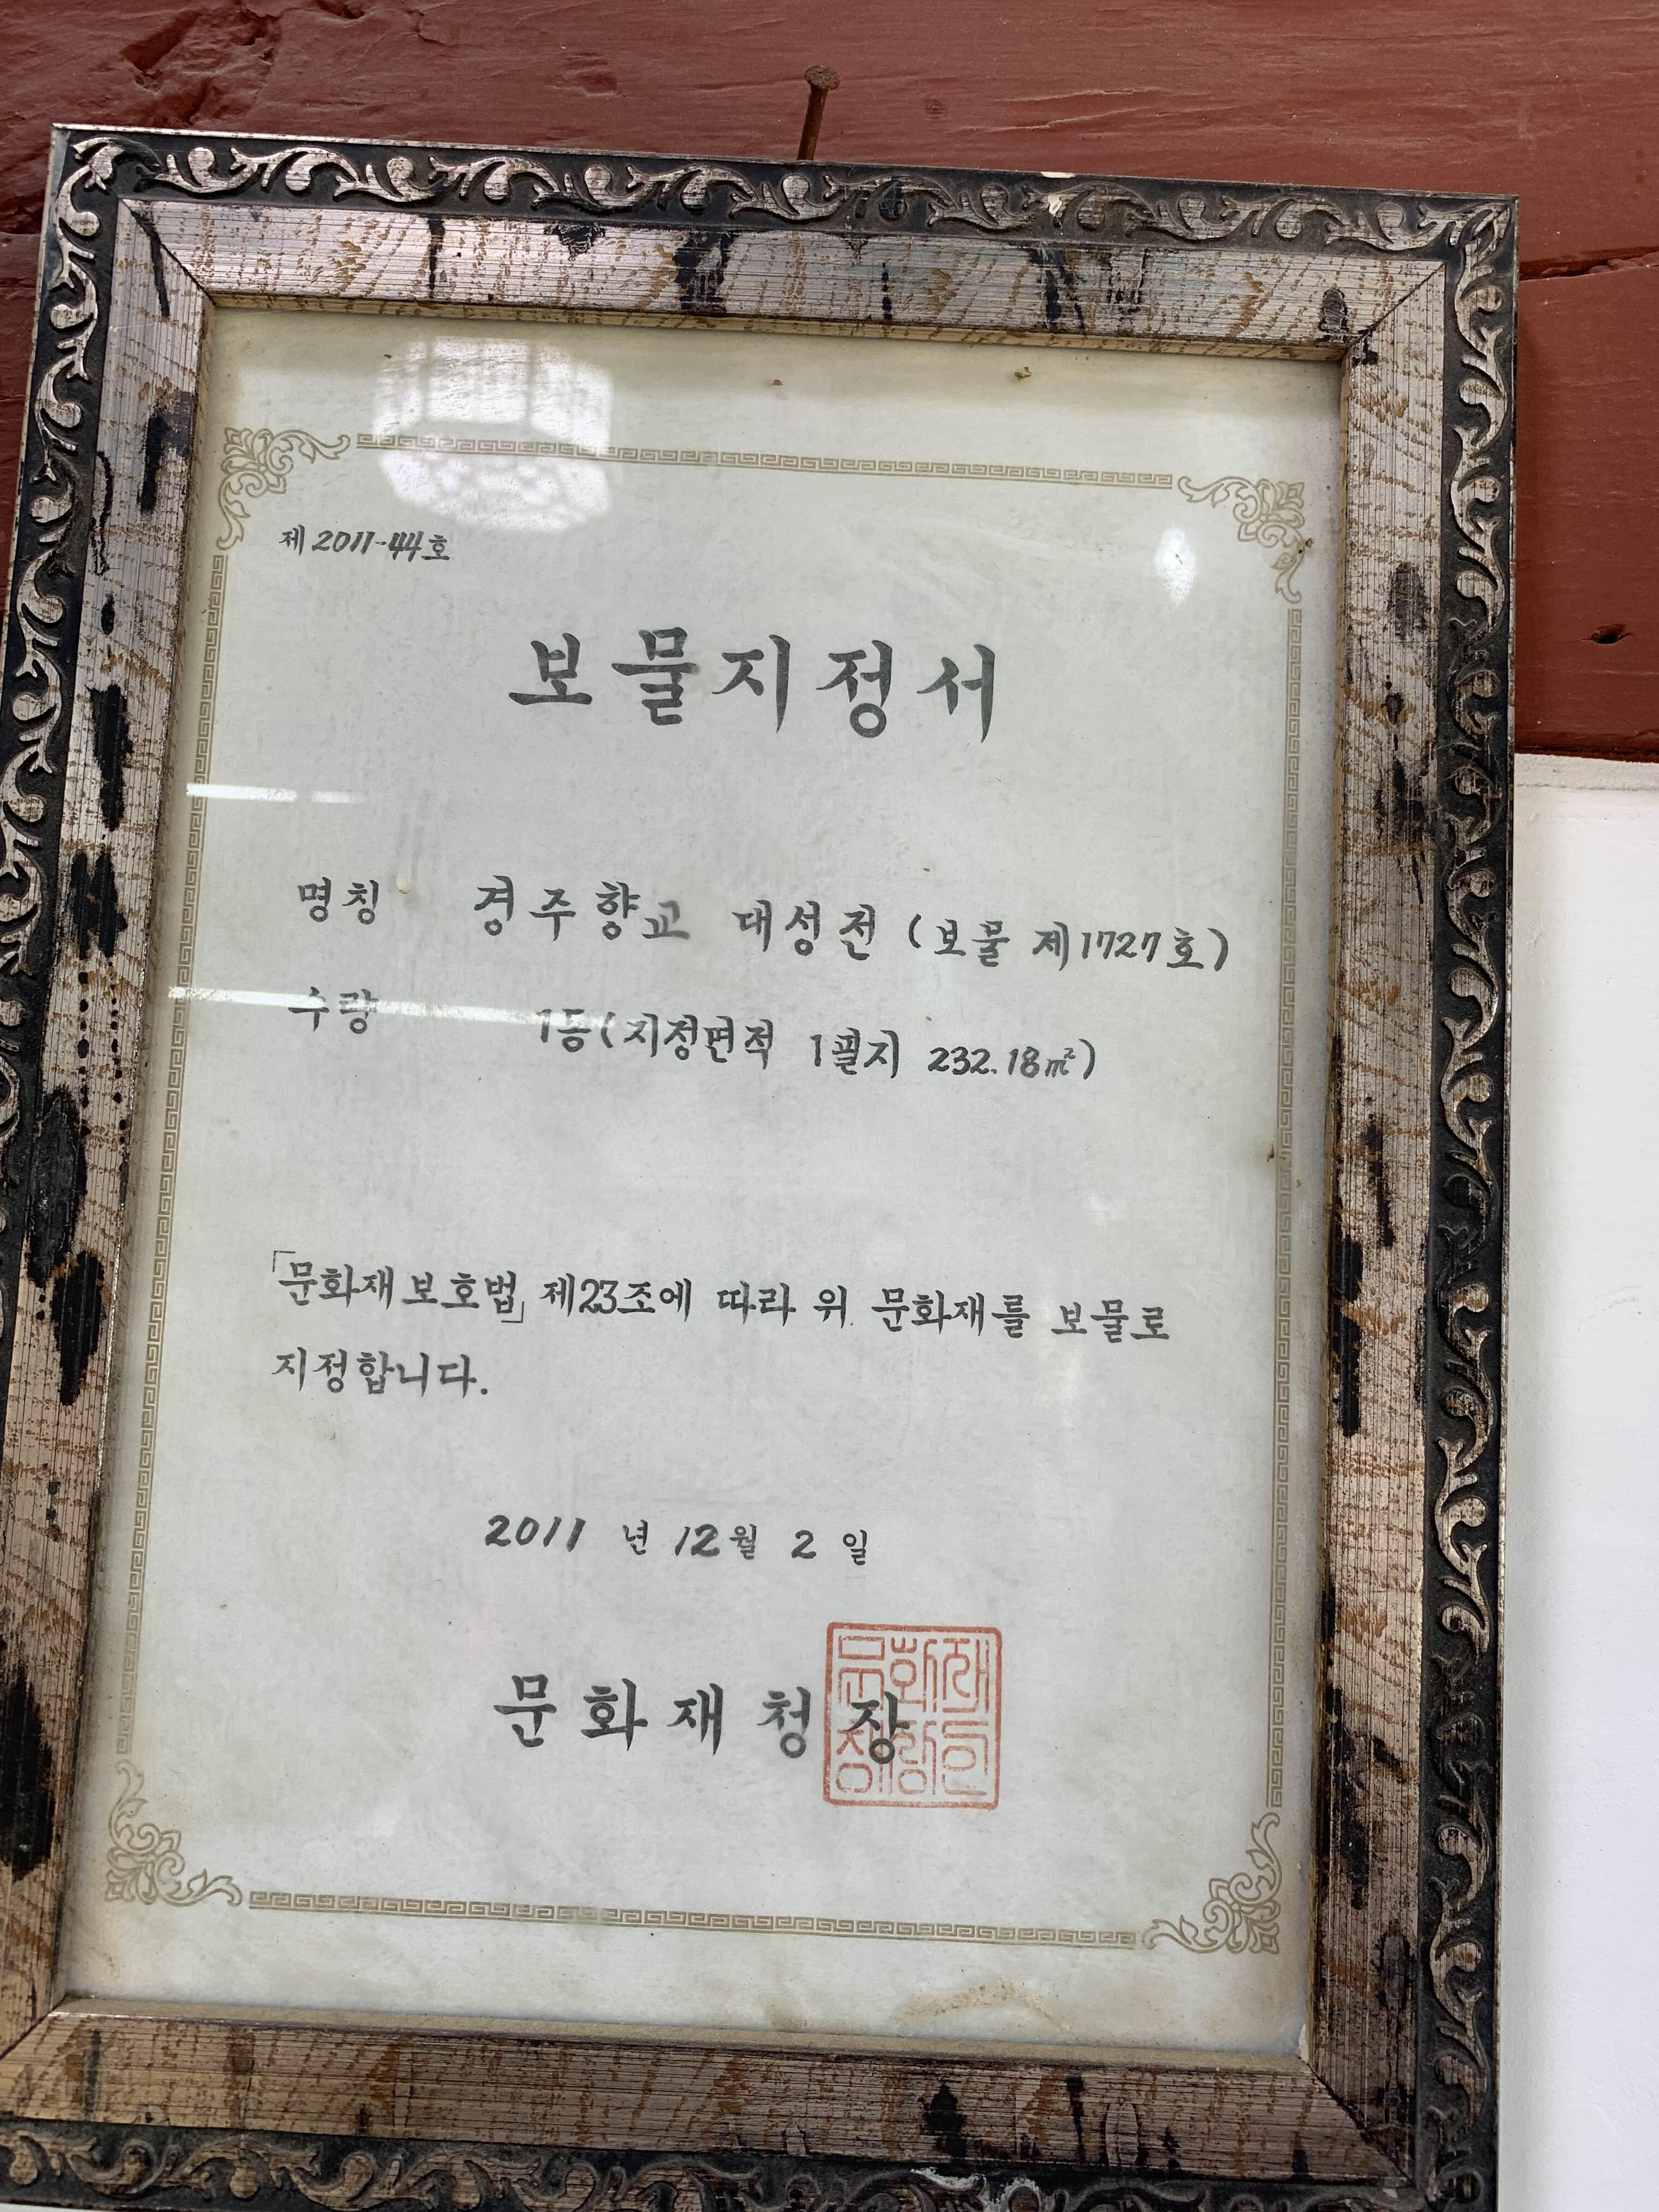 제2011-44호
보물지정서
명칭 경주향교 대성전 (보물 제1727호)
수량 1동(지정면적 1필지 232.18㎡)
「문화재보호법」 제23조에 따라 위 문화재를 보물로
지정합니다.
2011 년 12 월 2 일
문화재청장
문화재
청장인